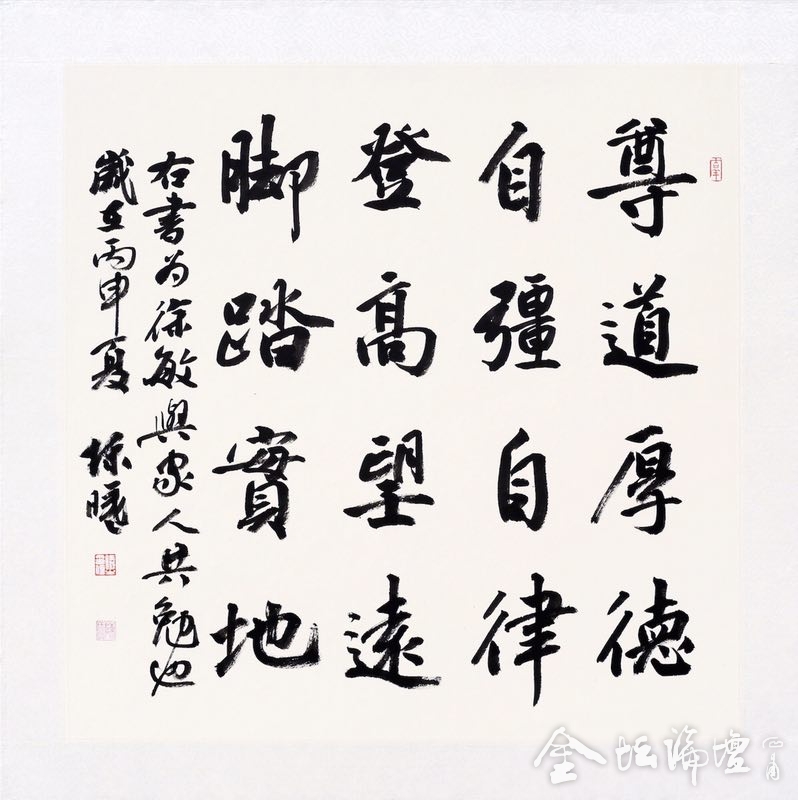 尊道厚德
自彊自律
登高望遠
脚踏實地
右書为徐敏與家人共勉也
歲在丙申夏 徐曦
金坛論壇